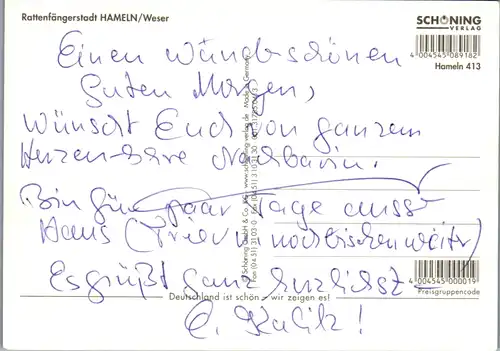 Rattenfängerstadt HAMELN/Weser
SCHÖNING
VERLAG
4 004545 089182
Hameln 413
Einen wünderschönen
Guten Morgen,
wünscht Euch von ganzem
Herzen-Eure Nachbarin.
Bin für paar Tage ausse
Haus (Trier u. noch bischen weiter)
Es grüßt ganz herzlichst
C. Kalitz!
4 004545 000019
Preisgruppencode
Deutschland ist schön - wir zeigen es!
Schöning GmbH & Co. KG
www.schoening-verlag.de
Made in Germany
Fon (04 51) 3 10 3-0